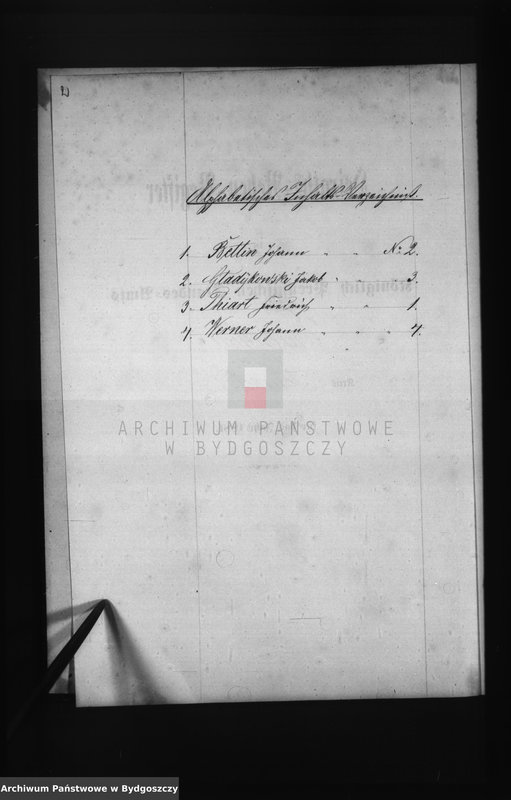 Alphabetisches Inhalts-Verzeichniß.
1. Bettin Johann " " No 2.
2. Gladykowski Jakob " 3.
3. Thiart Friedrich " " 1.
4. Werner Johann " " " 4.
ARCHIWUM PAŃSTWOWE
W BYDGOSZCZY
Archiwum Państwowe w Bydgoszczy